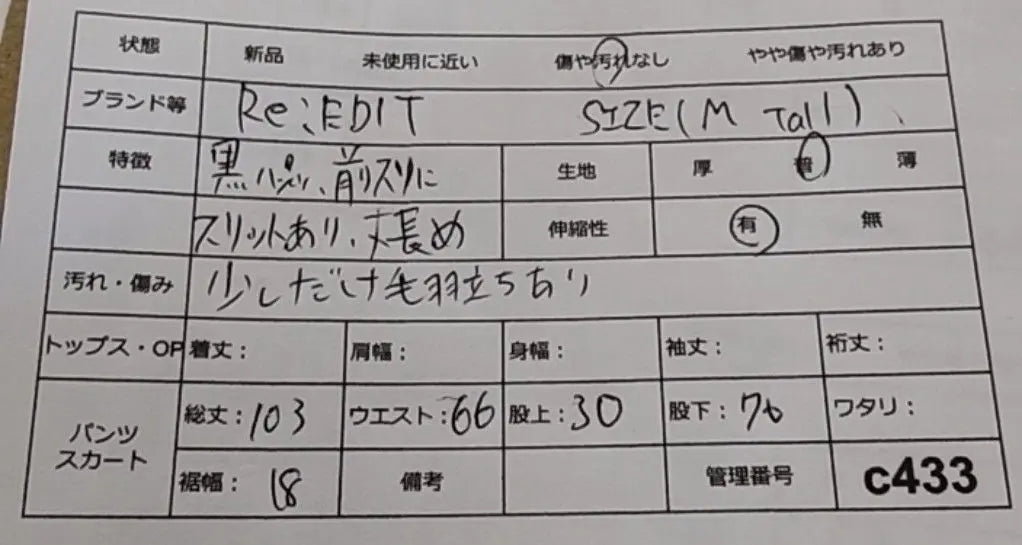 状態 新品 未使用に近い 傷や汚れなし やや傷や汚れあり
ブランド等 Re:EDIT SIZE(M Tall)、
特徴 黒パンツ、前スソに 生地 厚 普 薄
スリットあり、丈長め 伸縮性 有 無
汚れ・傷み 少しだけ毛羽立ちあり
トップス・OP 着丈: 肩幅: 身幅: 袖丈: 裄丈:
パンツ
スカート
総丈:103 ウエスト:66 股上:30 股下:76 ワタリ:
裾幅:18 備考 管理番号 c433